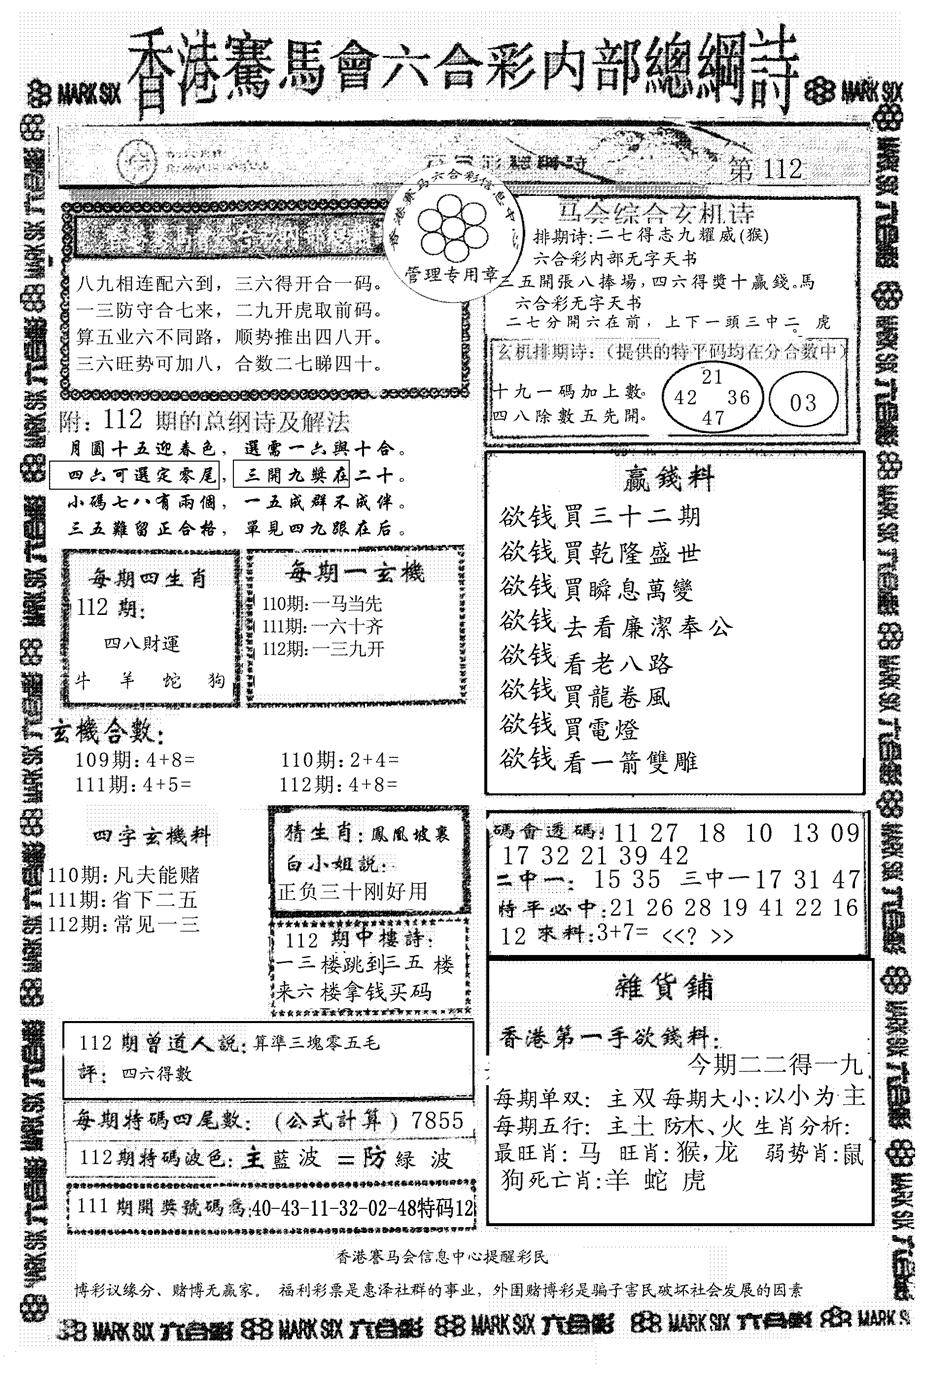 香港賽馬會六合彩内部總綱詩
MARK SIX
MARK SIX
第 112
香港赛马六合彩信息中心
管理专用章
八九相连配六到，三六得开合一码。
一三防守合七来，二九开虎取前码。
算五业六不同路，顺势推出四八开。
三六旺势可加八，合数二七睇四十。
附：112 期的总纲诗及解法
月圓十五迎春色，選需一六與十合。
四六可選定零尾，三開九獎在二十。
小碼七八有兩個，一五成群不成伴。
三五難留正合格，單見四九跟在后。
马会综合玄机诗
排期诗:二七得志九耀威(猴)
六合彩内部无字天书
三五開張八捧場,四六得獎十贏錢。馬
六合彩无字天书
二七分開六在前，上下一頭三中二。虎
玄机排期诗：(提供的特平码均在分合数中)
十九一碼加上數。
四八除數五先開。
21
42 36
47
03
每期四生肖
112 期：
四八財運
牛 羊 蛇 狗
每期一玄機
110期:一马当先
111期:一六十齐
112期:一三九开
玄機合數：
109期:4+8= 110期:2+4=
111期:4+5= 112期:4+8=
四字玄機料
110期:凡夫能赌
111期:省下二五
112期:常见一三
猜生肖:鳳凰坡裏
白小姐説:
正负三十刚好用
112 期中樓詩:
一三楼跳到三五楼
来六楼拿钱买码
赢錢料
欲钱買三十二期
欲钱買乾隆盛世
欲钱買瞬息萬變
欲钱去看廉潔奉公
欲钱看老八路
欲钱買龍卷風
欲钱買電燈
欲钱看一箭雙雕
碼會透碼:11 27 18 10 13 09
17 32 21 39 42
二中一: 15 35 三中一17 31 47
特平必中:21 26 28 19 41 22 16
12 來料:3+7= <<? >>
雜貨鋪
香港第一手欲錢料:
今期二二得一九
每期单双: 主双 每期大小:以小为主
每期五行: 主土 防木、火 生肖分析:
最旺肖: 马 旺肖:猴,龙 弱势肖:鼠
狗死亡肖:羊 蛇 虎
112 期曾道人説:算準三塊零五毛
評: 四六得數
每期特碼四尾數: (公式計算) 7855
112期特碼波色:主藍波=防緑波
111期開獎號碼爲:40-43-11-32-02-48特码12
香港賽马会信息中心提醒彩民
博彩议缘分、赌博无赢家。 福利彩票是惠泽社群的事业，外围赌博彩是骗子害民破坏社会发展的因素
MARK SIX 六合彩 MARK SIX 六合彩 MARK SIX 六合彩 MARK SIX 六合彩 MARK SIX